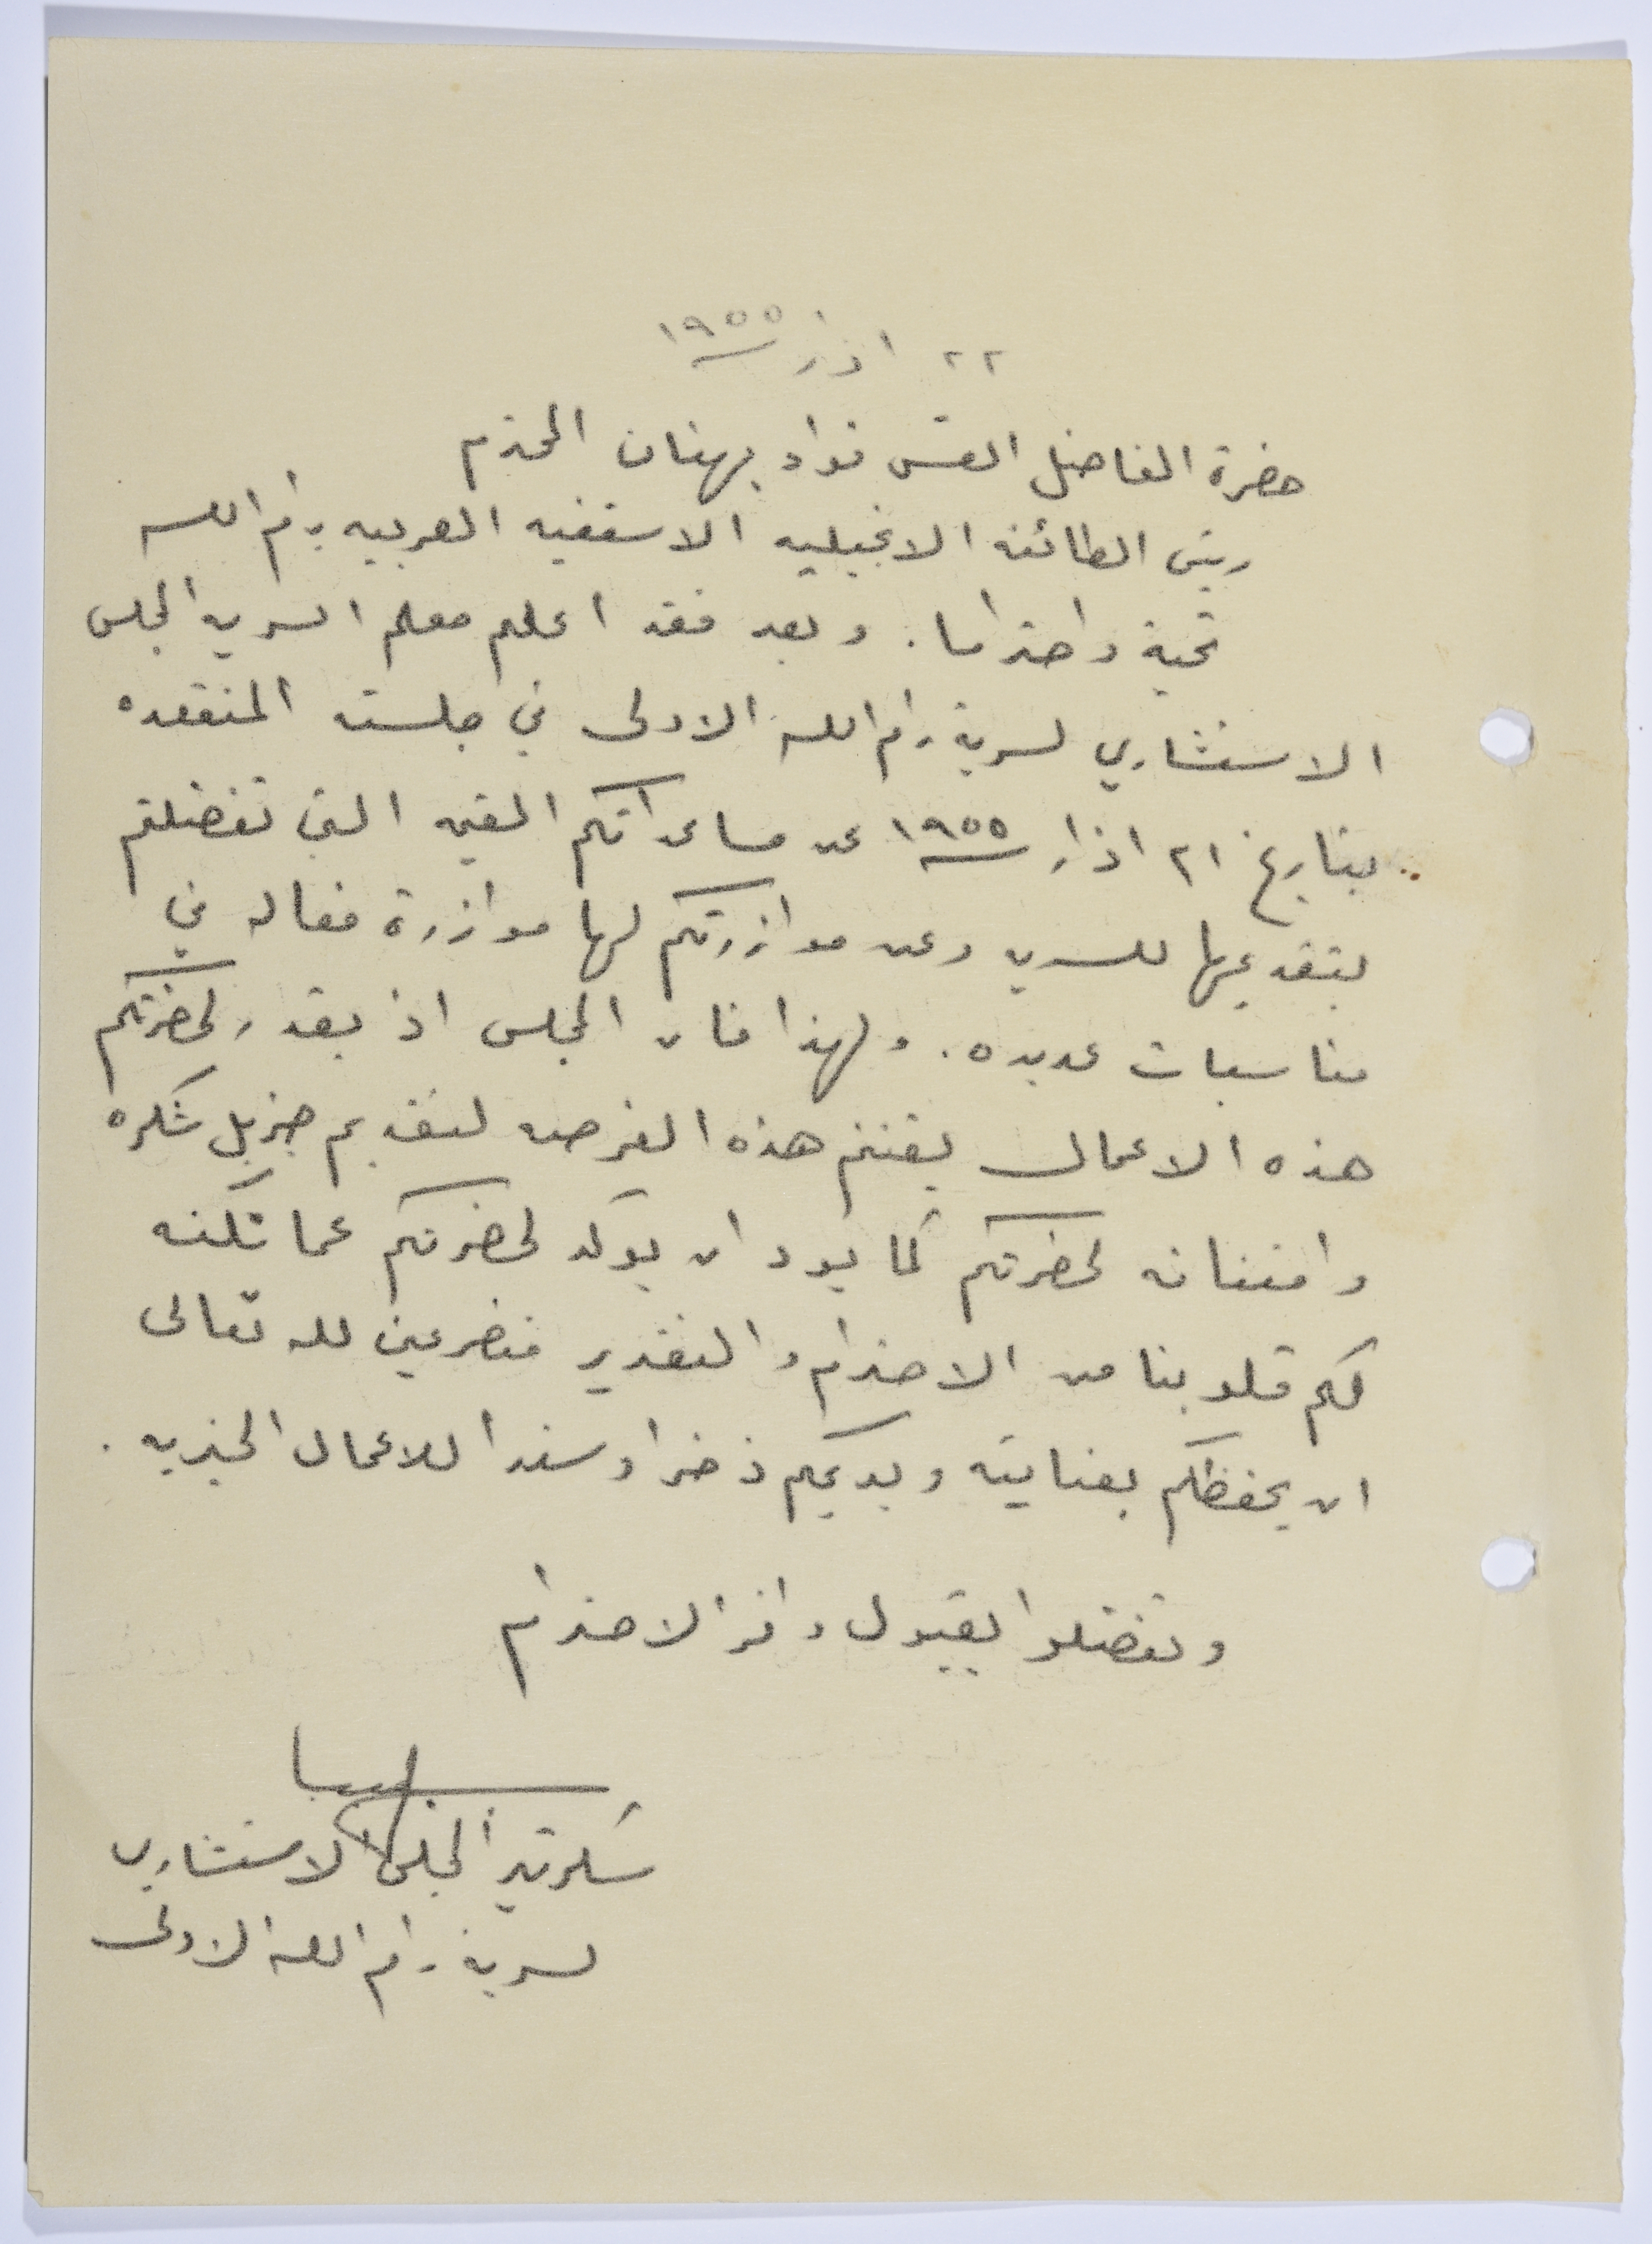 ٢٢ اذار ١٩٥٥
حضرة الفاضل القس فواد بهنان المحترم
ريس الطائفه الانجيليه الاسقفيه العربيه برام الله
تحية واحتراما. وبعد فقد اعلم معلم السريه المجلس
الاستشاري لسرية رام الله الاولى في جلسته المنعقده
بتاريخ ٢١ اذار ١٩٥٥ عن مساعداتكم القيمه التي تفضلتم
بتقديمها للسريه وعن موازرتكم لها موازرة فعاله في
مناسبات عديده. ولهذا فان المجلس اذ يقدر لحضرتكم
هذه الاعمال يغتنم هذه الفرصه لتقديم جزيل شكره
وامتنانه لحضرتكم كما يود ان يوكد لحضرتكم عما تكنه
لكم قلوبنا من الاحترام والتقدير متضرعين لله تعالى
ان يحفظكم بعنايته ويديمكم ذخرا وسندا للاعمال الخيريه.
وتفضلوا بقبول وافر الاحترام
سكرتير المجلس الاستشاري
لسرية رام الله الاولى